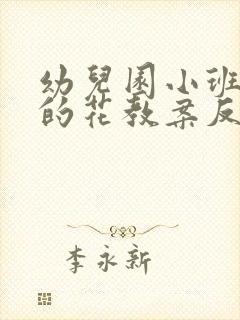 幼兒園小班
的花教案反
李永新